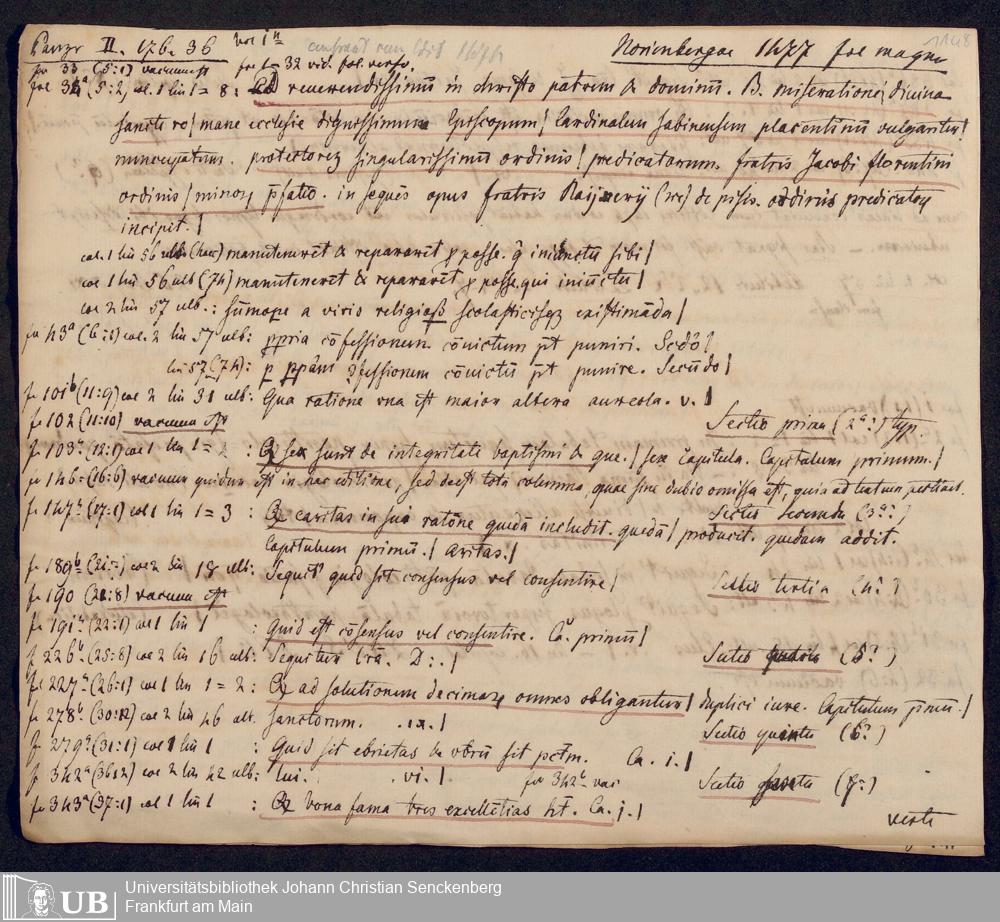 Panzer II. 176. 36 vol 1n Norimbergae 1477 fol magno 1148
fol 33 (5:1) vacuum est fol 1–32 vid. fol. verso.
fol 34a (5:2) col. 1 lin 1 = 8 : Ad reverendissimū in christo patrem & dominū. B. miseratione divina
sancte ro/mane ecclesie dignissimum Episcopum/ Cardinalem sabinensem placentinū vulgariter/
nuncupatum. protectorem singularissimū ordinis/ predicatorum. fratris Jacobi florentini
ordinis/ minorum p̄fatio. in sequēs opus fratris Raynerij (ne) de pisis. ordinis predicatorum
incipit./
col. 1 lin 56 ultb (haec) manuteneret & repararet p posse. q̄ iniunctū sibi/
col 1 lin 56 ulb (74) manuteneret & repararet p posse. qui iniūctū/
col 2 lin 57 ulb. : sūmope a viris religiosis scolasticisque existimāda/
fol 43a (6:1) col. 2 lin 57 ulb: ppria cōfessionem. cōvictum p̄t puniri. Scdō?
lin 57 (74): p ppām 9fessionem cōvictū p̄t punire. Secūdo/
fol 101b (11:9) col 2 lin 31 ulb: Qua ratione una est maior altera aureola. v./
fol 102 (11:10) vacuum est Sectio prima (2a:) typ.
fol 103a (12:1) col 1 lin 1 = 2 : Q sex sunt de integritate baptismi & que./ sex capitula. Capitulum primum./
fol 146 (16:6) vacuum quidem est in hac editione, sed deest tota columna, quae sine dubio omissa est, quia ad textum pertinet.
fol 147a (17:1) col 1 lin 1 = 3 : Q caritas in sua ratōne quedā includit. quedā/ producit. quedam addit. Sectio secunda (3a:)
Capitulum primū./ Aritas./
fol 189b (21:) col 2 lin 18 ulb: Sequit' quid sit consensus vel consentire/
fol 190 (21:8) vacuum est Sectio tertia (4:)
fol 191a (22:1) col 1 lin 1 : Quid est cōsensus vel consentire. Ca. primū/
fol 226b (25:8) col 2 lin 16 ulb: Sequitur lr̄a. D:./ Sectio quarta (5:)
fol 227a (26:1) col 1 lin 1 = 2 : Q ad solutionem decimarum omnes obligantur/ duplici iure. Capitulum p̄mū./
fol 278b (30:12) col 2 lin 46 ult. sanctorum. .ix./
fol 279a (31:1) col 1 lin 1 : Quid sit ebrietas & utrū sit pctm. Ca. i./ Sectio quinta (6:)
fol 342a (36:2) col 2 lin 42 ulb: lui. .vi./ fol 342b vac
fol 343a (37:1) col 1 lin 1 : Q bona fama tres excellētias ht. Ca. j./ Sectio sexta (7:)
verte
UB Universitätsbibliothek Johann Christian Senckenberg
Frankfurt am Main